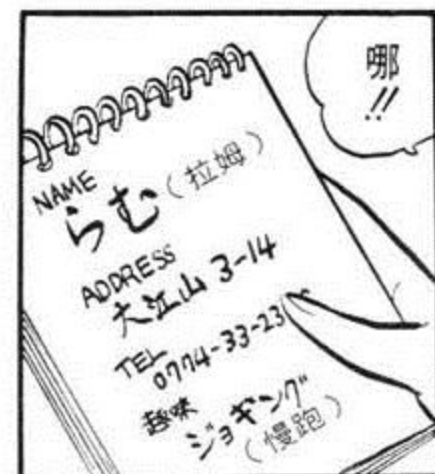 哪!!
NAME
らむ(拉姆)
ADDRESS
大江山 3-14
TEL
0774-33-23
趣味
ジョギング
(慢跑)